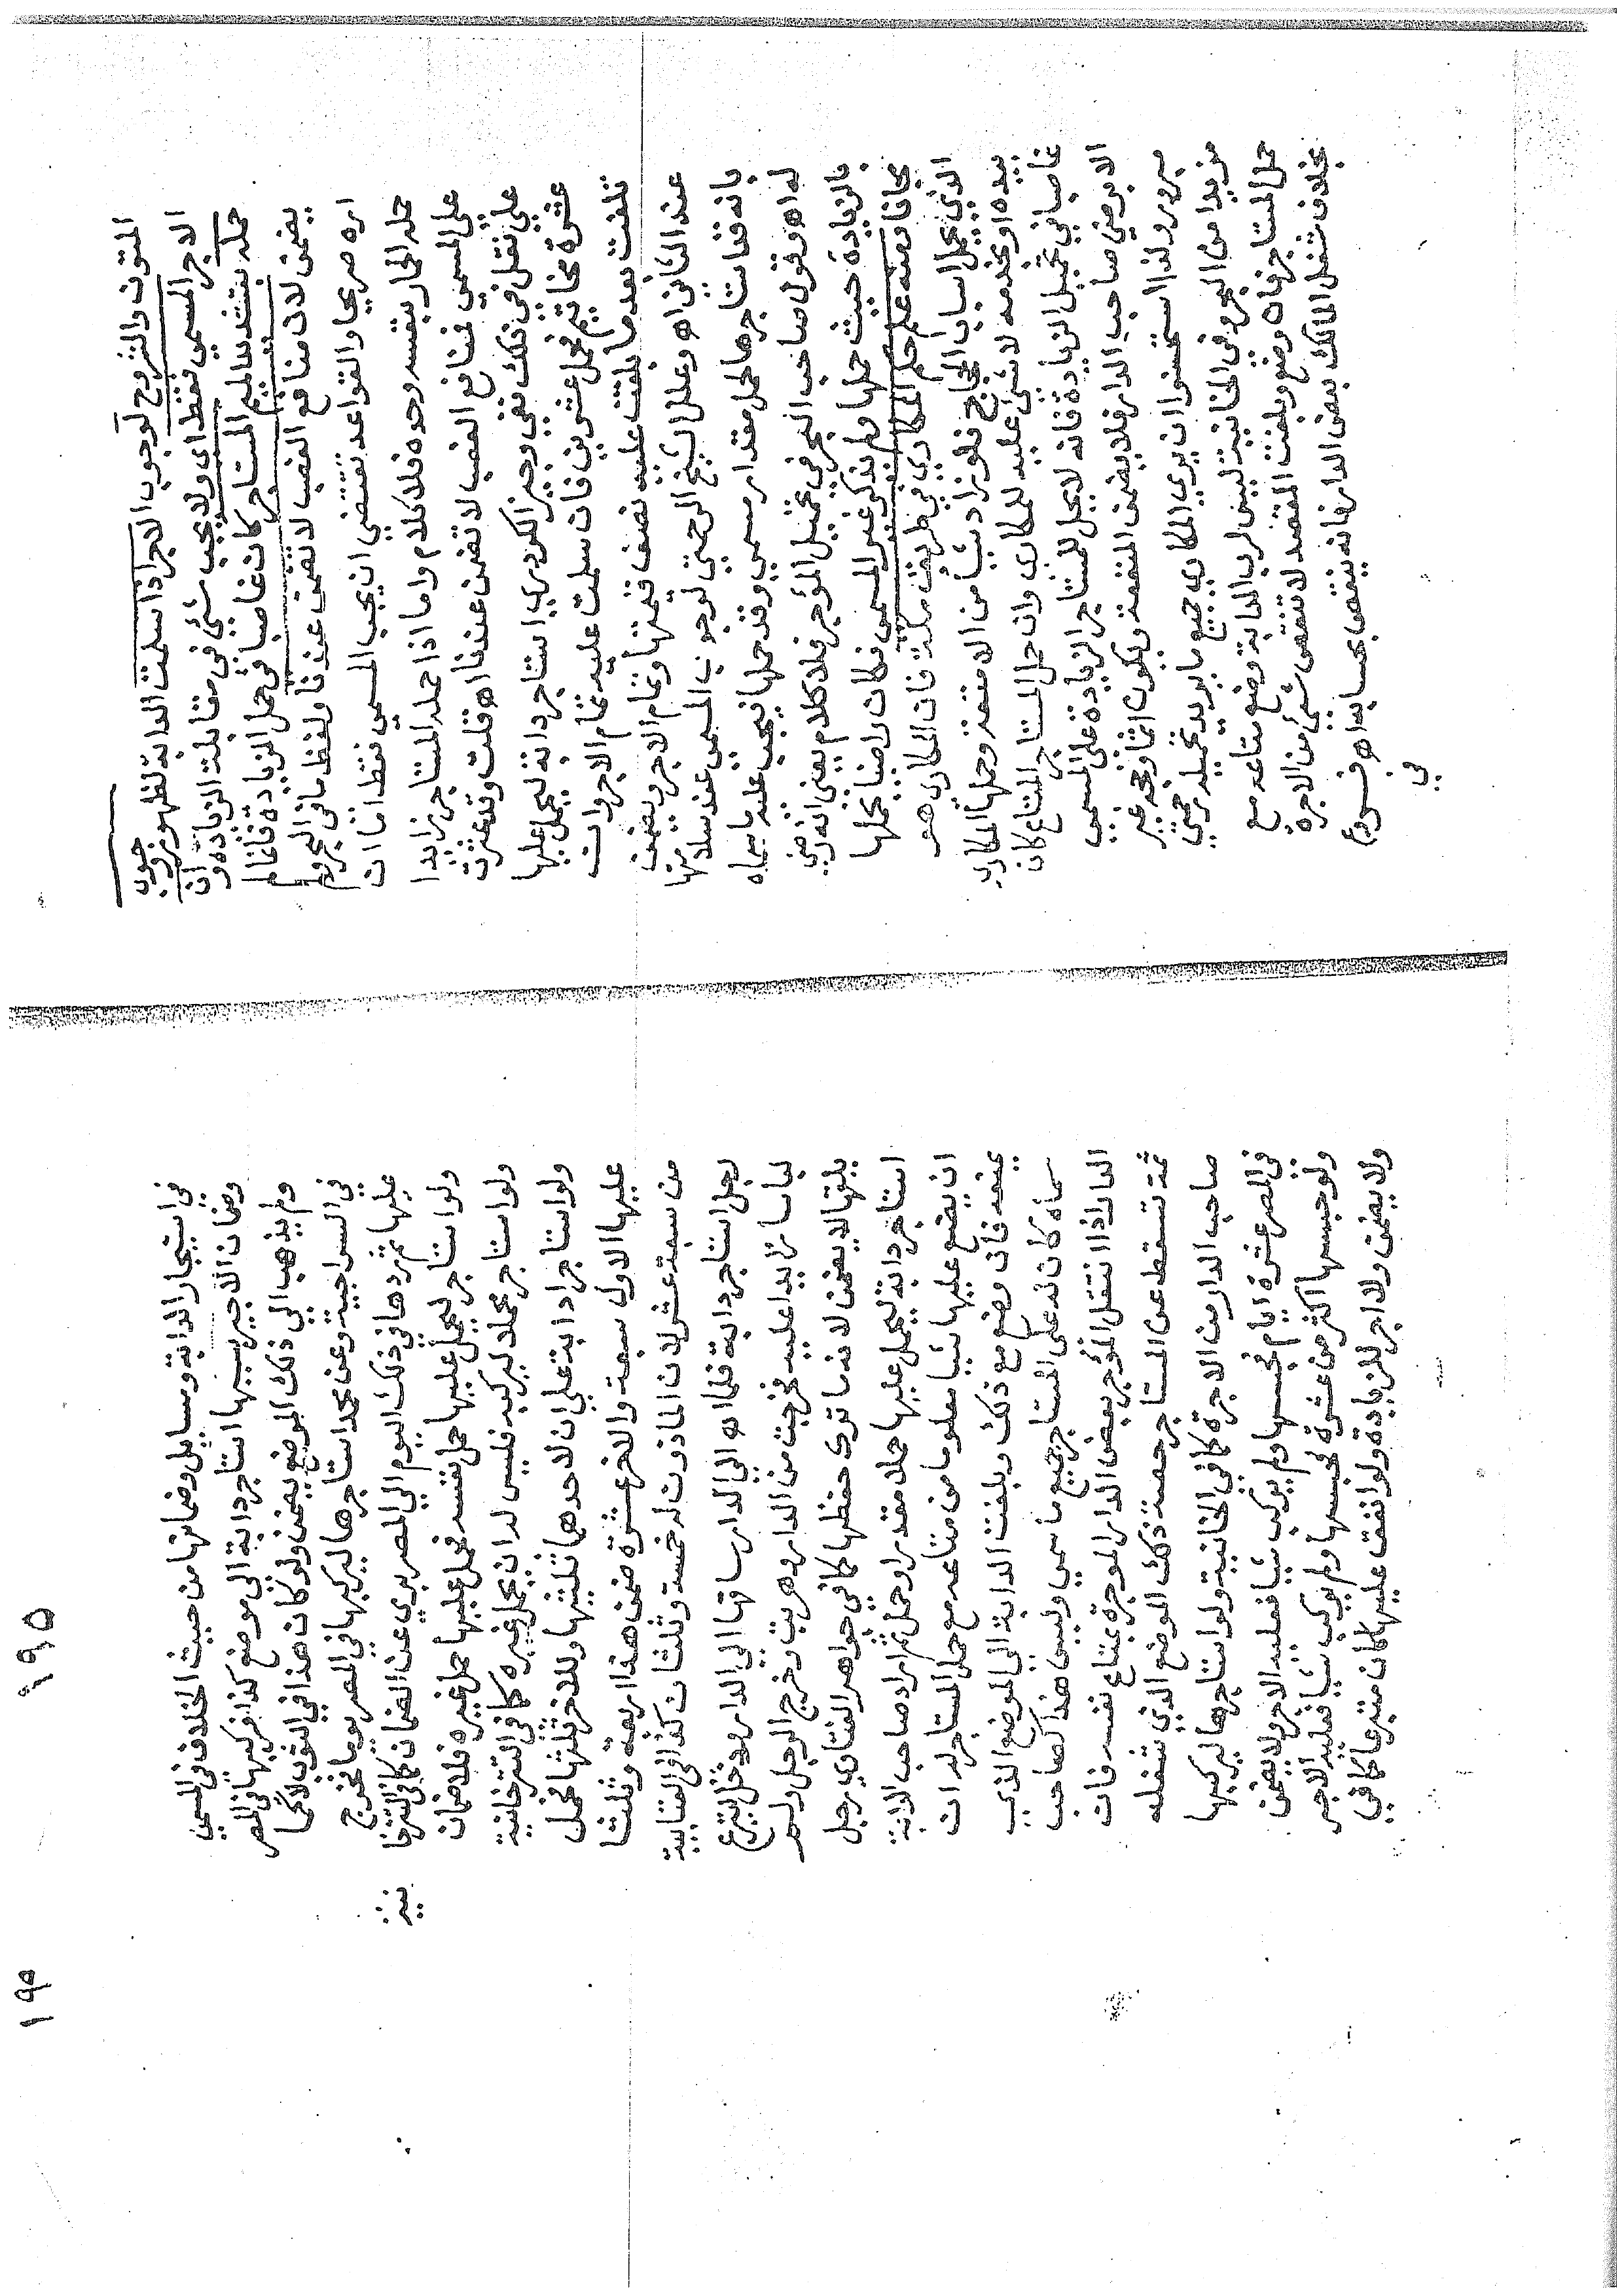 المتون والشروح لوجوب الاجر اذا سلمت الدابة لظهور وجوب
الاجر المسمى فقط اى ولا يجب شئ فى مقابلة الزيادة وان
حمله بتشديد الميم المستاجر كان غاصبا فى حمل الزيادة فلم
يضمن لان منافع الغصب لا تضمن عندنا ولفظ ما فى البحر ولم
اره صريحا والقواعد تقتضى ان يجب المسمى فقط اما ان
حمله المكار بنفسه وحده فلا كلام واما اذا حمله المستاجر زايدا
على المسمى فمنافع الغصب لا تضمن عندنا اه قلت وقد عثرت
على نقل فى ذلك ففى وجيز الكردرى استاجر دابة ليحمل عليها
عشرة مخاتيم فحمل عشرين فان سلمت عليه تمام الاجر وان
تلفت بعد ما بلغت عليه نصف قيمتها وتمام الاجر ويضمن
عند الثانى اه وعلل الشيخ الرحمتى لوجوب المسمى عند سلامتها
بانه قد استاجرها لحمل مقدار مسمى وقد حملها فيجب عليه ما سماه
له اه وقول صاحب البحر فى تحميل المؤجر فلا كلام يعنى انه رضى
بالزيادة حيث حملها ولم يذكر غير المسمى فكان راضيا بحملها
مجانا ومنه علم حكم المكارى فى طريق مكة فان المكارى هو
الذى يحمل اسباب الحجاج فلو زاد شيأ من الامتعة وحملها المكارى
بيده او بخدمه لا شئ عليه للمكارى وان حمل المستاجر المتاع كان
غاصبا فى تحميل الزيادة فانه لا يحل للمستاجر الزيادة على المسمى
الا برضى صاحب الدار فلا يضمن المنفعة ويكون اثما غير
مبرور ولذا استحسنوا ان يرى المكارى جميع ما يريد تحميله رحمتى
مزيدا من البحر وفى الخانية ليس لرب الدابة وضع متاعه مع
حمل المستاجر فان وضع وبلغت المقصد لا ينقص شئ من الاجرة
بخلاف شغل المالك بعض الدار فانه ينقص بحسابه اه فروع
فى
١٩٥
١٩٥
فى استيجار الدابة ومسايل وضمانها من حيث الخلاف فى المسمى
وضمان الاجير بسببها استاجر دابة الى موضع كذا فركبها فى المصر
ولم يذهب الى ذلك الموضع يضمن ولو كان هذا فى الثوب لا كما
فى السراجية وعن محمد استاجرها ليركبها فى المصر يوما فخرج
عليها ثم ردها فى ذلك اليوم الى المصر برى عن الضمان كما فى التترخا
نيه
ولو استاجر ليحمل عليها حمل نفسه فحمل عليها حمل غيره فلا ضمان
ولو استاجر محملا ليركبه فليس له ان يحمل غيره كما فى التترخانية
ولو استاجرا دابة على ان لاحدهما ثلثيها وللاخر ثلثها فحمل
عليها الاول سبعة والاخر عشرة ضمن هذا اربعة وثلثا
من سبعة عشر لان الماذون له خمسة وثلثان كذا فى العتابية
رجل استاجر دابة فلما اتى الى الدار ساقها الى الدار ودخل لينزع
لباسا زايدا عليه فخرجت من الدار وهربت وخرج الرجل ولم
يلقها لا يضمن لانه ما ترك حفظها كما فى جواهر الفتاوى رجل
استاجر دابة ليحمل عليها حملا مقدرا وحمل ثم اراد صاحب الدابة
ان يضع عليها شيا معلوما من متاعه مع حمل المستاجر له ان
يمنعه فان وضع مع ذلك وبلغت الدابة الى الموضع الذى
سماه كان له على المستاجر جميع ما سمى وليس هذا كصاحب
الدار اذا انتقل المؤجر بعض الدار الموجرة بمتاع نفسه فان
ثمة تسقط عن المستاجر حصة ذلك الموضع الذى شغله
صاحب الدار من الاجرة كما فى الخانية ولو استاجرها ليركبها
فى المصر عشرة ايام فحبسها ولم يركب شيا فعليه الاجر ولا يضمن
ولو حبسها اكثر من عشرة فحبسها ولم يركب شيا فعليه الاجر
ولا يضمن ولا اجر للزيادة ولو انفق عليها كان متبرعا كما فى